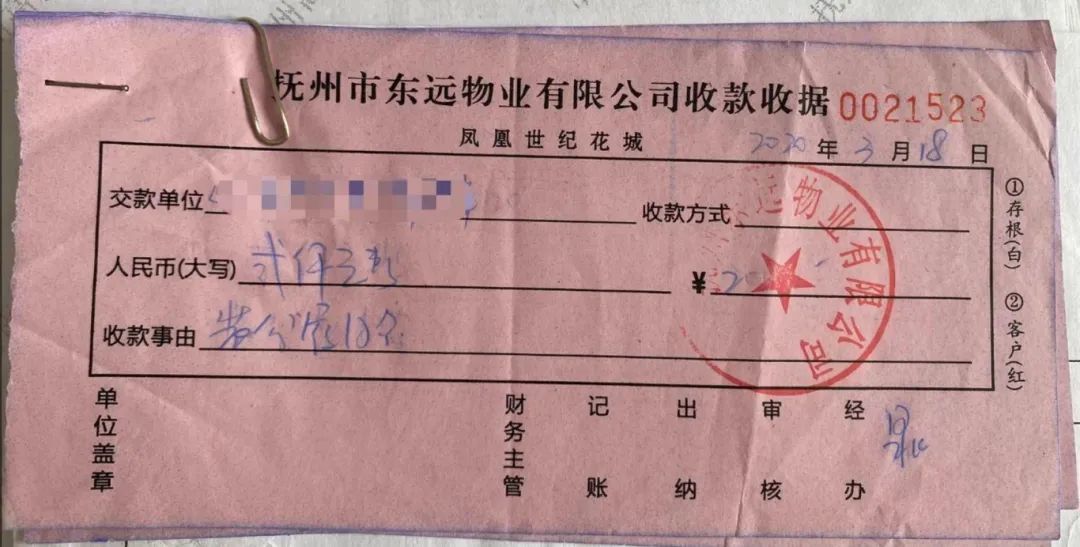 抚州市东远物业有限公司收款收据 0021523
凤凰世纪花城
2020年3月18日
交款单位 收款方式
人民币(大写) 贰仟元整 ¥20
收款事由
①存根(白) ②客户(红)
物业有限公司
单位盖章 财务主管 记账 出纳 审核 经办